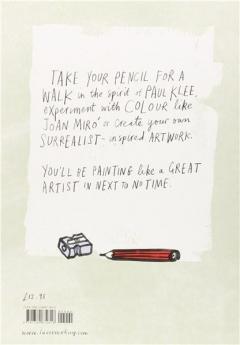 TAKE YOUR PENCIL FOR A
WALK in the spirit of PAUL KLEE,
experiment with COLOUR like
JOAN MIRÓ or create your own
SURREALIST-inspired ARTWORK.
YOU'LL BE PAINTING like a GREAT
ARTIST IN NEXT to NO TIME.
£12.95
www.laurenceking.com